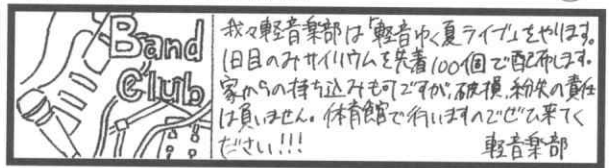 Band
Club
我々軽音楽部は「軽音ゆく夏ライブ」をやります。
1日目のみサイリウムを先着100個で配布します。
家からの持ち込みも可ですが、破損、紛失の責任
は負いません。体育館で行いますのでぜひ来てく
ださい!!!
軽音楽部